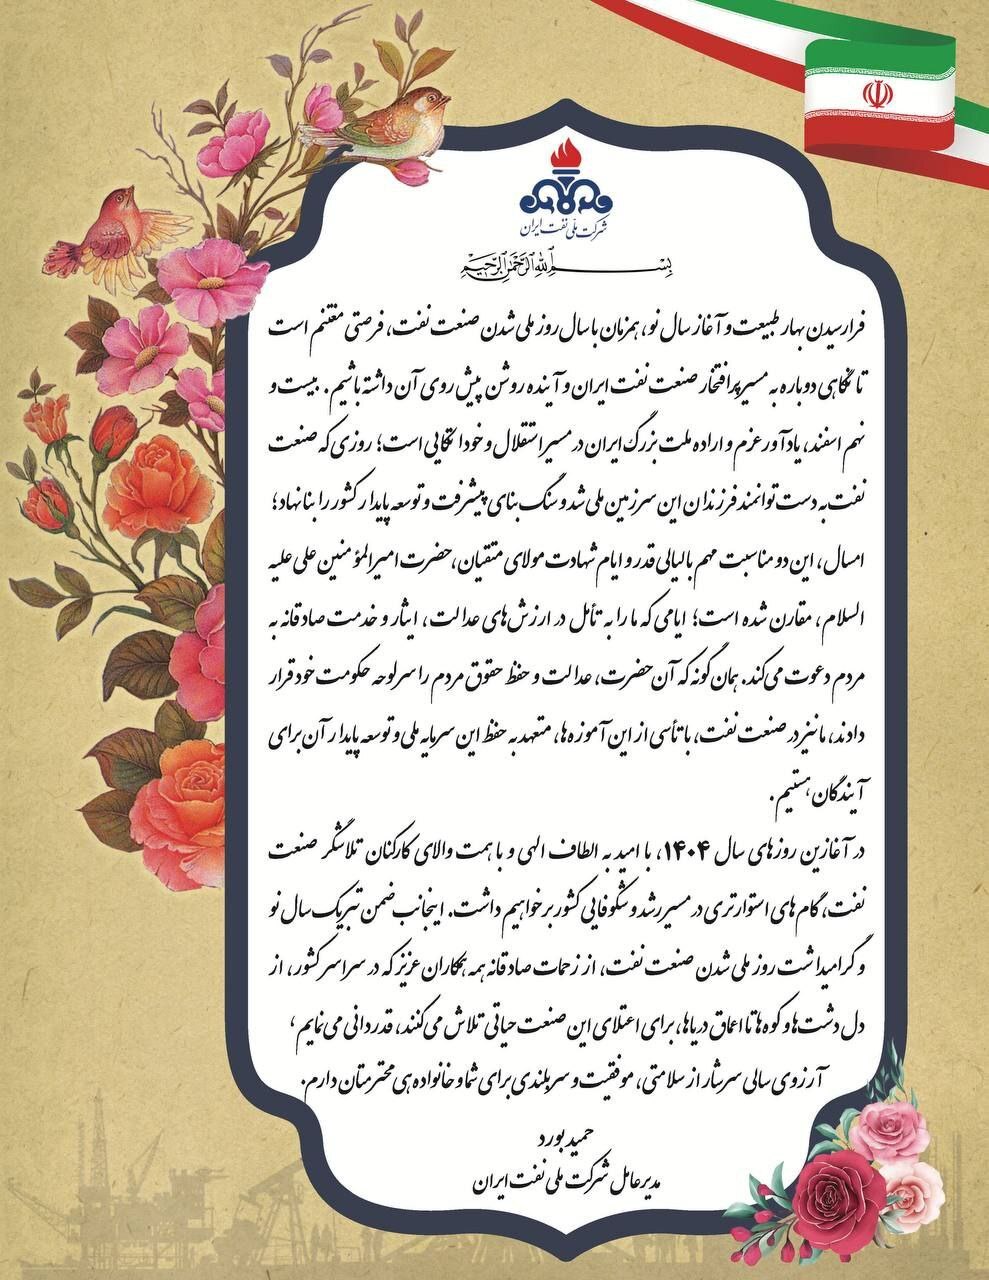 شرکت ملی نفت ایران
بسم الله الرحمن الرحیم
فرارسیدن بهار طبیعت و آغاز سال نو، همزمان با سال روز ملی شدن صنعت نفت، فرصتی مغتنم است
تا نگاهی دوباره به مسیر پرافتخار صنعت نفت ایران و آینده روشن پیش روی آن داشته باشیم. بیست و
نهم اسفند، یادآور عزم و اراده ملت بزرگ ایران در مسیر استقلال و خوداتکایی است؛ روزی که صنعت
نفت به دست توانمند فرزندان این سرزمین ملی شد و سنگ بنای پیشرفت و توسعه پایدار کشور را بنا نهاد؛
امسال، این دو مناسبت مهم با لیالی قدر و ایام شهادت مولای متقیان، حضرت امیرالمؤمنین علی علیه
السلام، مقارن شده است؛ ایامی که ما را به تأمل در ارزش‌های عدالت، ایثار و خدمت صادقانه به
مردم دعوت می‌کند. همان گونه که آن حضرت، عدالت و حفظ حقوق مردم را سرلوحه حکومت خود قرار
دادند، ما نیز در صنعت نفت، با تأسی از این آموزه‌ها، متعهد به حفظ این سرمایه ملی و توسعه پایدار آن برای
آیندگان هستیم.
در آغازین روزهای سال ۱۴۰۴، با امید به الطاف الهی و با همت والای کارکنان تلاشگر صنعت
نفت، گام های استوارتری در مسیر رشد و شکوفایی کشور برخواهیم داشت. اینجانب ضمن تبریک سال نو
و گرامیداشت روز ملی شدن صنعت نفت، از زحمات صادقانه همه همکاران عزیز که در سراسر کشور، از
دل دشت‌ها و کوه‌ها تا اعماق دریاها، برای اعتلای این صنعت حیاتی تلاش می‌کنند، قدردانی می‌نمایم،
آرزوی سالی سرشار از سلامتی، موفقیت و سربلندی برای شما و خانواده‌ی محترمتان دارم.
حمید بورد
مدیرعامل شرکت ملی نفت ایران